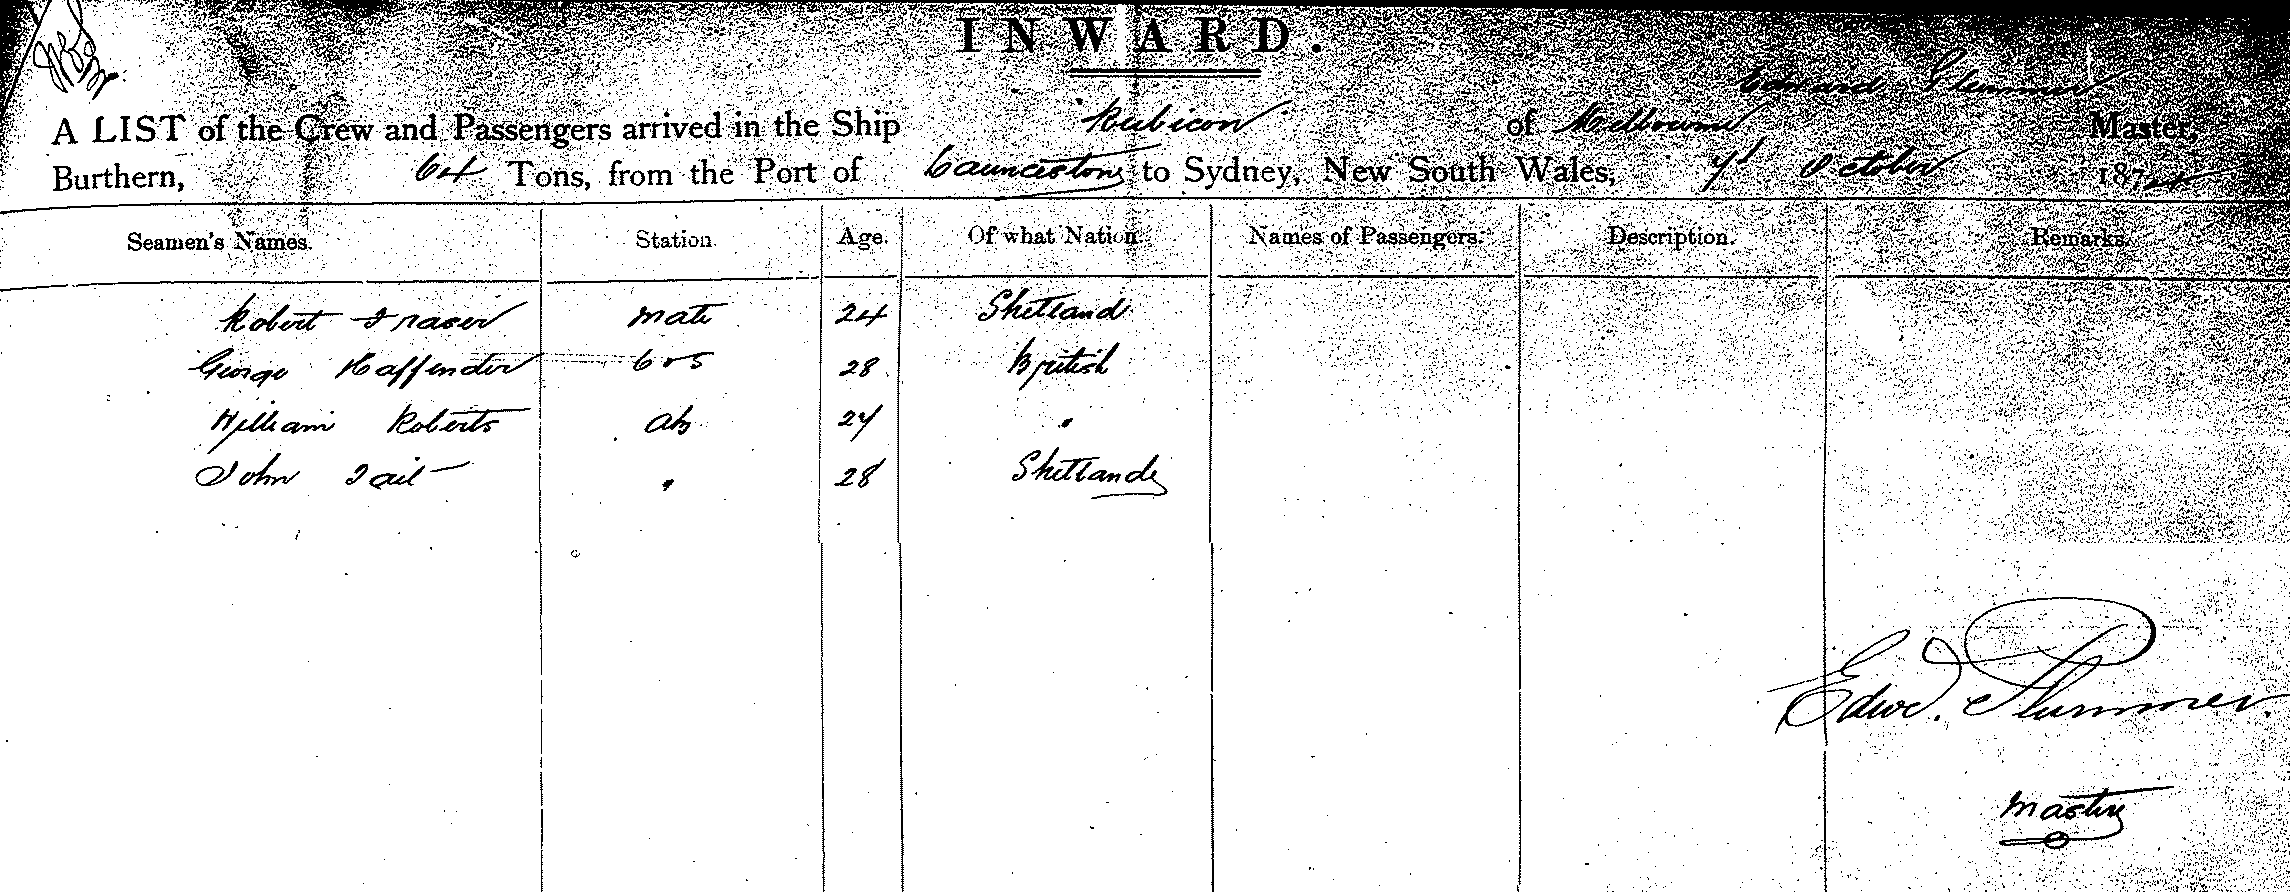 INWARD.
Edward Plummer
A LIST of the Crew and Passengers arrived in the Ship Rubicon of Melbourne Master,
Burthern, 64 Tons, from the Port of Launceston to Sydney, New South Wales, October 187
Seamen's Names. Station. Age. Of what Nation. Names of Passengers. Description. Remarks.
Robert Fraser mate 24 Shetland
George Haffender 28 British
William Roberts ab 24 "
John Tait " 28 Shetland
Edwd. Plummer.
Master